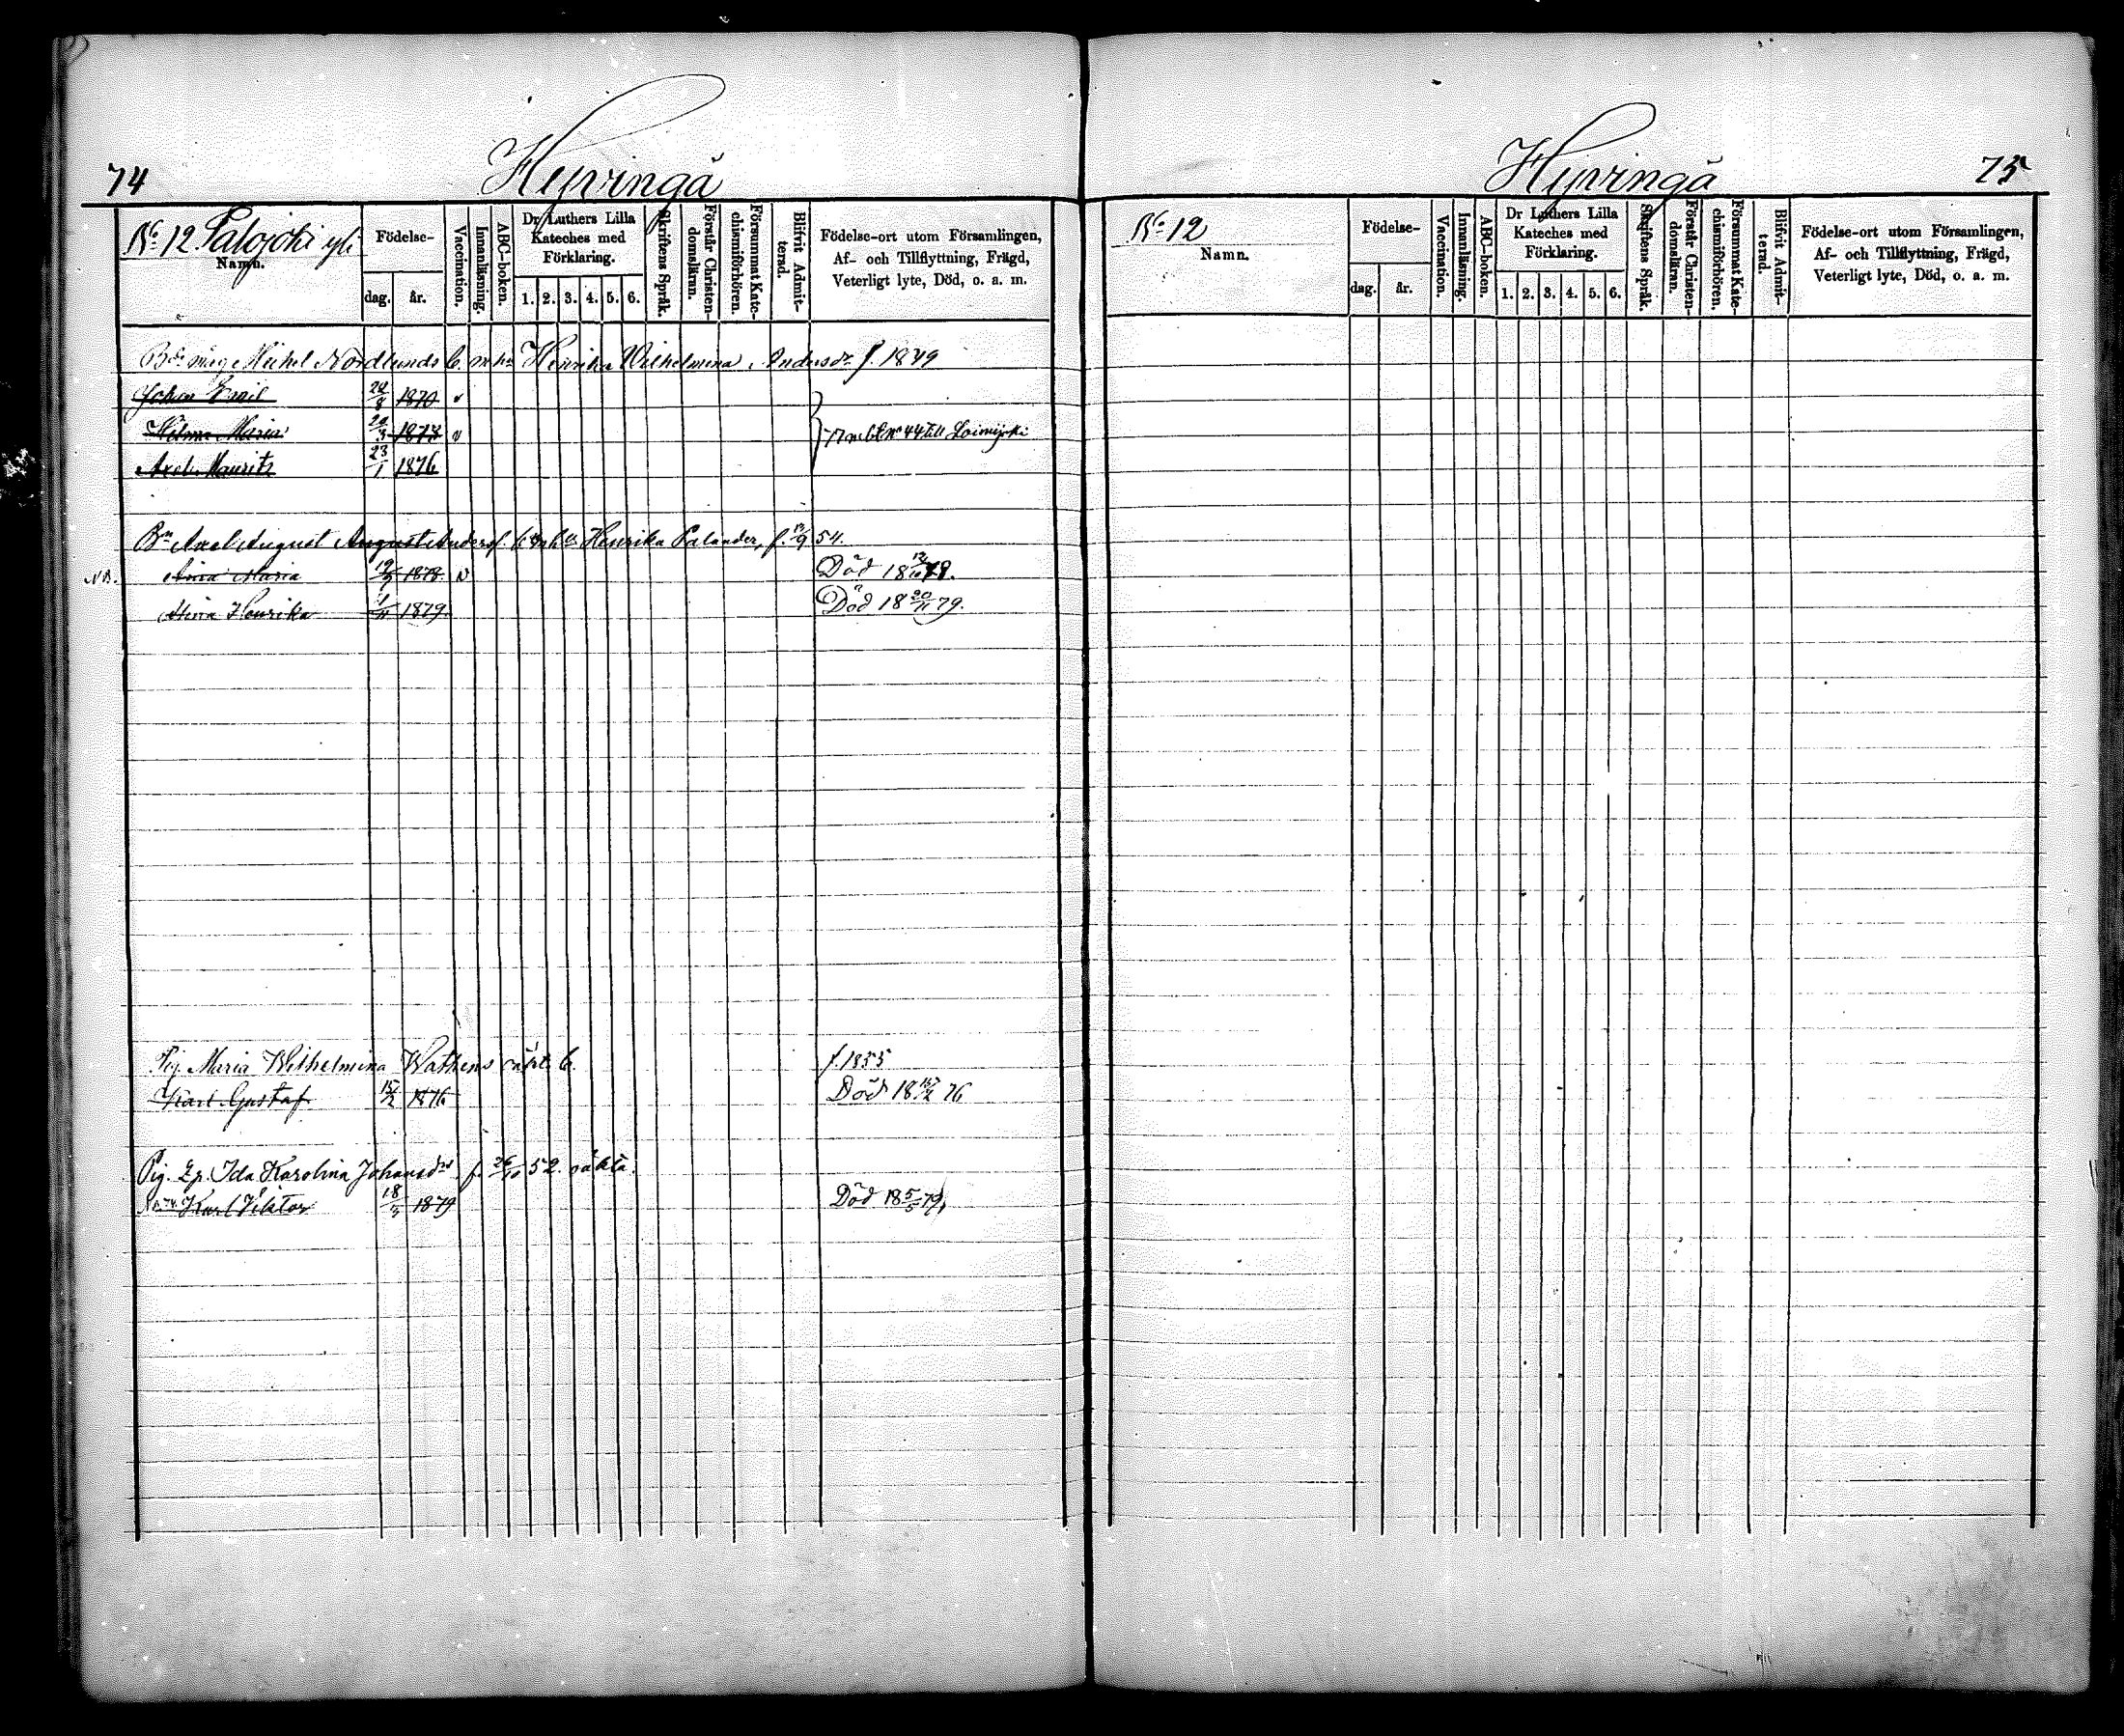 74
Hyvingä
No 12 Palojoki yli
Namn.
Födelse-
dag.
år.
Vaccination.
Innanläsning.
ABC-boken.
Dr Luthers Lilla
Kateches med
Förklaring.
1. 2. 3. 4. 5. 6.
Skriftens Språk.
Förstår Christen-
domsläran.
Försummat Kate-
chismiförhören.
Blifvit Admit-
terad.
Födelse-ort utom Församlingen,
Af- och Tillflyttning, Frägd,
Veterligt lyte, Död, o. a. m.
Michel Nordlunds b. m. h. Henrika Wilhelmina Andersdr f. 1849
Johan Emil 24/8 1870 v
Maria 1873 v
till Loimijoki
Axel Mauritz 23/1 1876
Bn Axel August August Anders. b. m. h. Henrika Palander, f. 54.
NB. Maria 1878 v Död 18 79.
Henrika 1879. Död 18 20/11 79.
Pig. Maria Wilhelmina Wathens oäkt. b. f. 1855
Karl Gustaf 15/2 1876 Död 18 76
Pig. Ida Karolina Johansdrs f. 26/10 52. oäkta.
Karl Viktor 18/3 1879 Död 18 5/5 79.
Hyvingä
75
No 12
Namn.
Födelse-
dag.
år.
Vaccination.
Innanläsning.
ABC-boken.
Dr Luthers Lilla
Kateches med
Förklaring.
1. 2. 3. 4. 5. 6.
Skriftens Språk.
Förstår Christen-
domsläran.
Försummat Kate-
chismiförhören.
Blifvit Admit-
terad.
Födelse-ort utom Församlingen,
Af- och Tillflyttning, Frägd,
Veterligt lyte, Död, o. a. m.